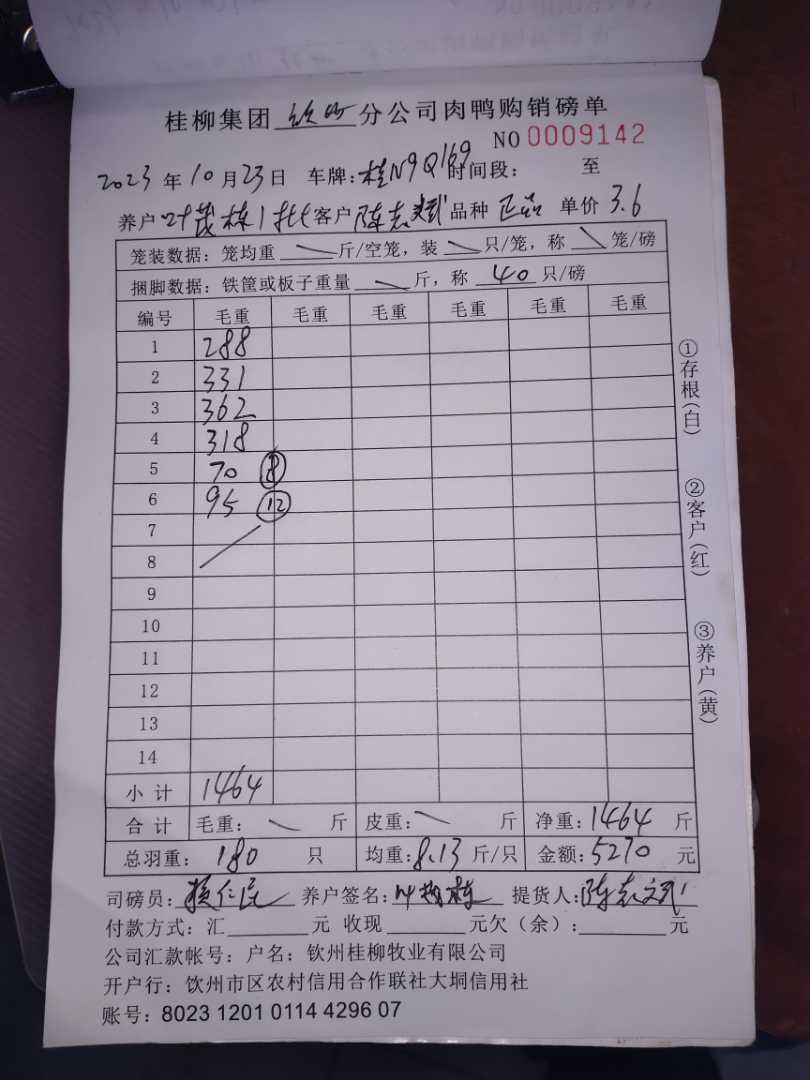 桂柳集团 钦州 分公司肉鸭购销磅单
NO 0009142
2023 年 10 月 23 日 车牌: 桂N9Q169 时间段: 至
养户 叶茂栋1批 客户 陈志斌 品种 正品 单价 3.6
笼装数据: 笼均重 斤/空笼, 装 只/笼, 称 笼/磅
捆脚数据: 铁筐或板子重量 斤, 称 40 只/磅
编号 毛重 毛重 毛重 毛重 毛重 毛重
1 288
2 331
3 362
4 318
5 70 8
6 95 12
7
8
9
10
11
12
13
14
小计 1464
合计 毛重: 斤 皮重: 斤 净重: 1464 斤
总羽重: 180 只 均重: 8.13 斤/只 金额: 5270 元
司磅员: 养户签名: 叶茂栋 提货人: 陈志斌
付款方式: 汇 元 收现 元欠(余): 元
公司汇款帐号: 户名: 钦州桂柳牧业有限公司
开户行: 饮州市区农村信用合作联社大垌信用社
账号: 8023 1201 0114 4296 07
①存根(白)
②客户(红)
③养户(黄)